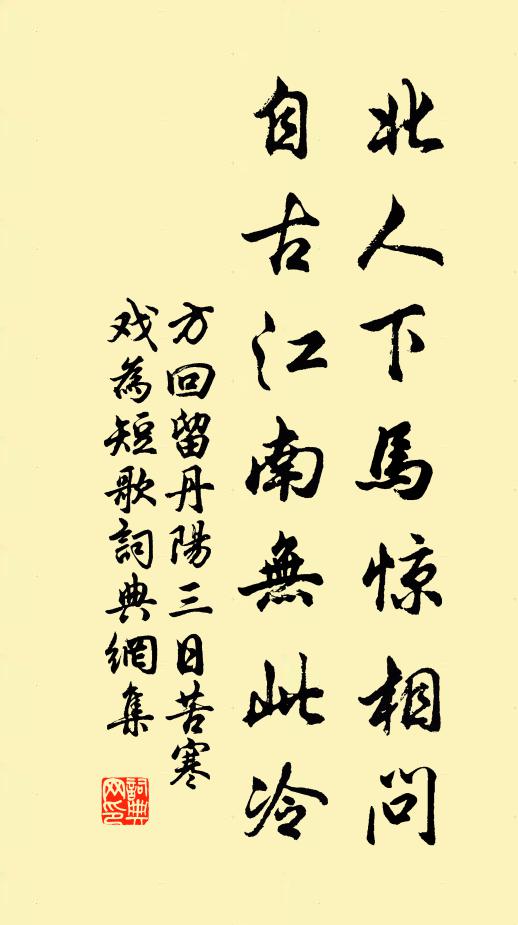 北人下馬惊相问
自古江南無此冷
方回留丹陽三日苦寒
戏為短歌詞典網集
詞典
网印